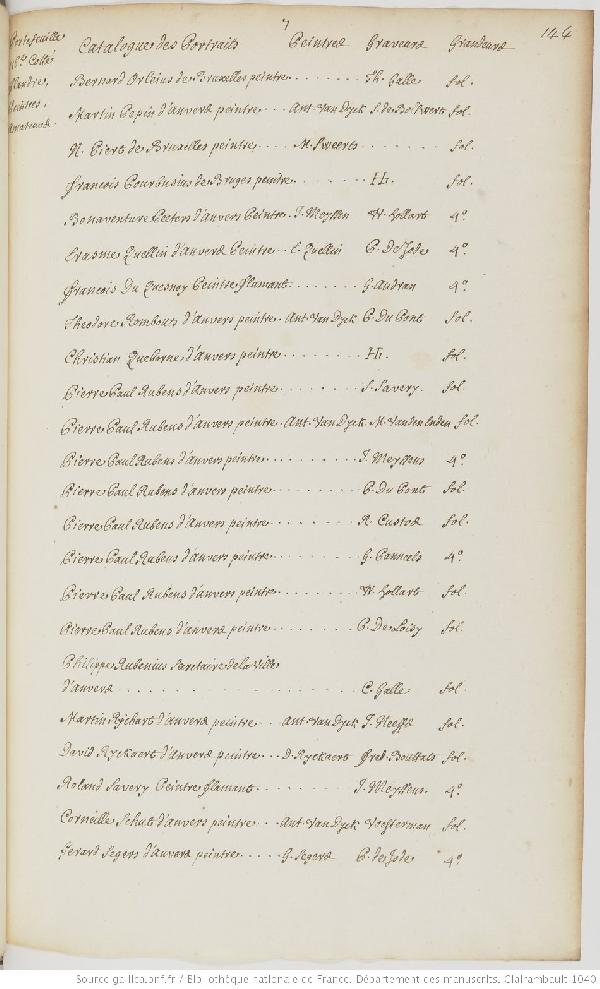 7
144
Portefeuille
Flandre,
Peintres,
Catalogue des Portraits Peintres Graveurs Grandeurs
Bernard Orleius de Bruxelles peintre ........ Th. Galle fol.
Martin Pepin d'anvers peintre .. Ant. Van Dyck S. de Bolswerts fol.
N. Piers de Bruxelles peintre .... M. Sweerts ........ fol.
françois Pourbusius de Bruges peintre ........ H. fol.
Bonaventure Peeters d'Anvers Peintre . J. Meyssen W. Hollart 4°
Erasme Quellin d'Anvers Peintre .. E. Quellin P. De Jode 4°
françois Du Quesnoy Peintre flamant ........ G. Audran 4°.
Theodore Rombouts d'Anvers peintre . Ant. Van Dyck P. Du Pont fol.
Christian Queborne d'Anvers peintre ........ H. fol.
Pierre Paul Rubens d'Anvers peintre ........ S. Savery. fol.
Pierre Paul Rubens d'Anvers peintre . Ant. Van Dyck M. Vanden Enden fol.
Pierre Paul Rubens d'Anvers peintre ........ J. Meyssens 4°.
Pierre Paul Rubens d'Anvers peintre ........ P. Du Pont fol.
Pierre Paul Rubens d'Anvers peintre ........ R. Custos fol.
Pierre Paul Rubens d'Anvers peintre ........ G. Panneels 4°.
Pierre Paul Rubens d'Anvers peintre ........ W. Hollart fol.
Pierre Paul Rubens d'anvers peintre ........ P. De Loisy fol.
Philippe Rubenius Secretaire de la Ville
d'anvers ........ C. Galle fol.
Martin Rychart d'anvers peintre ... Ant. Van Dyck J. Neeffs fol.
David Ryckaert d'anvers peintre ... D. Ryckaert fred. Bouttats fol.
Roland Savery Peintre flamant ........ J. Meyssens. 4°.
Corneille Schut d'anvers peintre ... Ant. Van Dyck Vosterman fol.
Gerard Segers d'anvers peintre .... G. Segers P. de Jode 4°
Source gallica.bnf.fr / Bibliothèque nationale de France. Département des manuscrits. Clairambault 1040